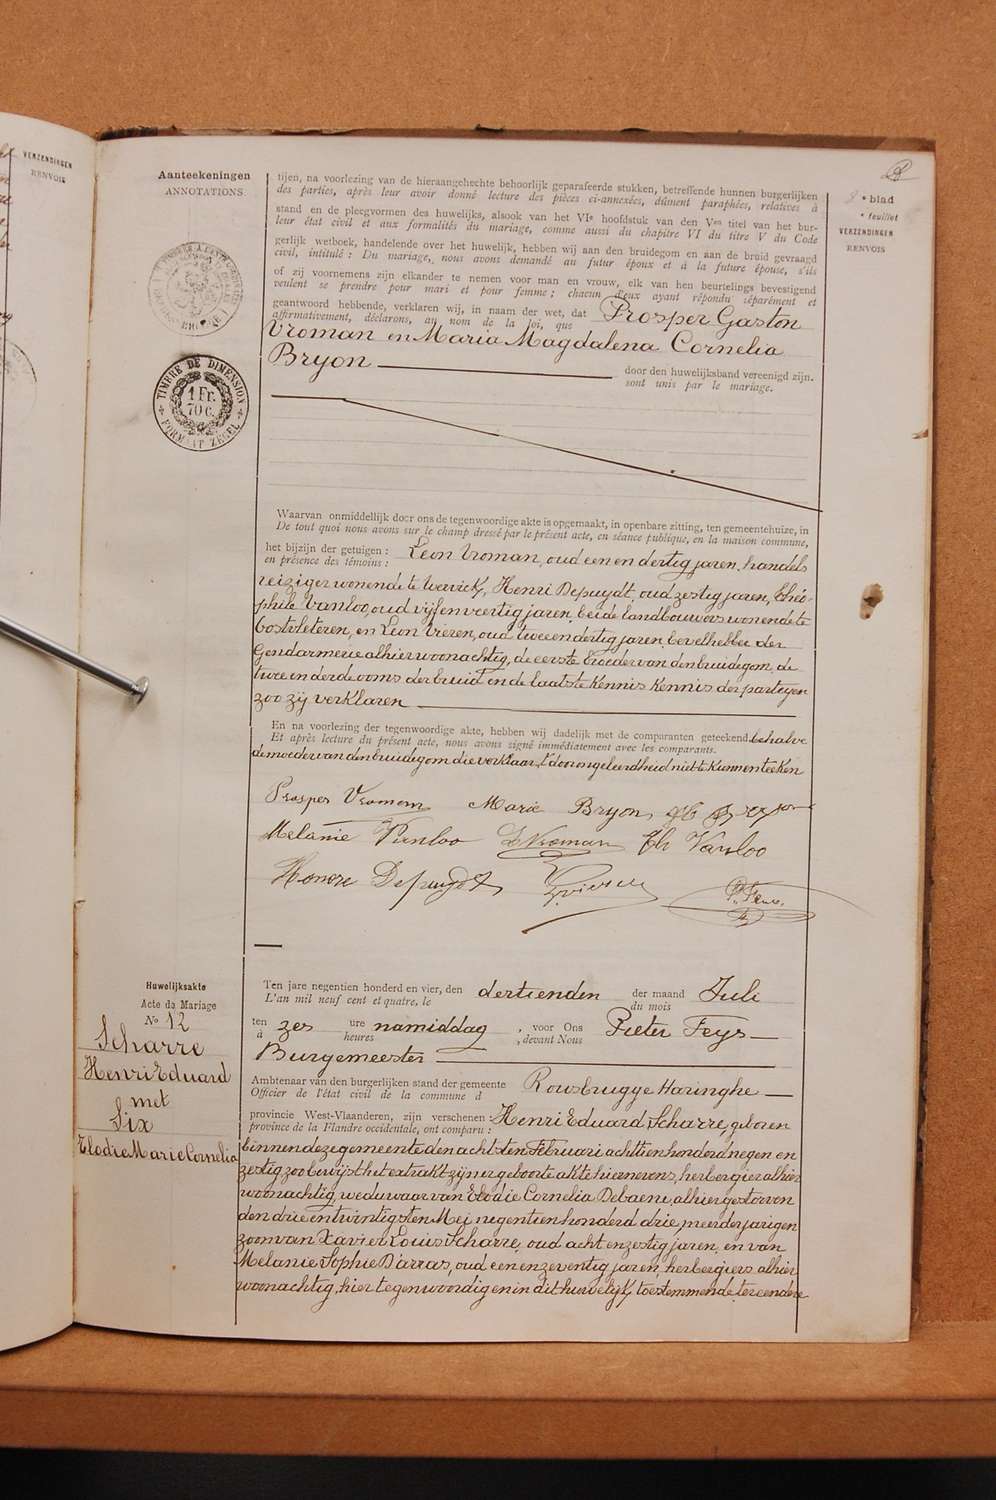 VERZENDINGEN
RENVOIS
Aanteekeningen
ANNOTATIONS.
tijen, na voorlezing van de hieraangehechte behoorlijk geparafeerde stukken, betreffende hunnen burgerlijken
des parties, après leur avoir donné lecture des pièces ci-annexées, dûment paraphées, relatives à
stand en de pleegvormen des huwelijks, alsook van het VIe hoofdstuk van den Ven titel van het bur-
leur état civil et aux formalités du mariage, comme aussi du chapitre VI du titre V du Code
gerlijk wetboek, handelende over het huwelijk, hebben wij aan den bruidegom en aan de bruid gevraagd
civil, intitulé : Du mariage, nous avons demandé au futur époux et à la future épouse, s'ils
of zij voornemens zijn elkander te nemen voor man en vrouw, elk van hen beurtelings bevestigend
veulent se prendre pour mari et pour femme ; chacun d'eux ayant répondu séparément et
geantwoord hebbende, verklaren wij, in naam der wet, dat Prosper Gaston
affirmativement, déclarons, au nom de la loi, que
Vroman en Maria Magdalena Cornelia
Bryon door den huwelijksband vereenigd zijn.
sont unis par le mariage.
blad
feuillet
VERZENDINGEN
RENVOIS
TIMBRE DE DIMENSION
1 Fr.
70 c.
FORMAAT ZEGEL
Waarvan onmiddellijk door ons de tegenwoordige akte is opgemaakt, in openbare zitting, ten gemeentehuize, in
De tout quoi nous avons sur le champ dressé par le présent acte, en séance publique, en la maison commune,
het bijzijn der getuigen : Leon Vroman, oud een en dertig jaren, handels
en présence des témoins :
reiziger wonende te Wervick, Henri Depuydt, oud zestig jaren, Théo-
phile Vanloo, oud vijf en veertig jaren, beide landbouwers wonende te
Oostvleteren, en Leon Vieren, oud twee en dertig jaren, bevelhebber der
Gendarmerie alhier woonachtig, de eerste broeder van den bruidegom, de
twee en derde ooms der bruid en de laatste kennis kennis der partijen
zoo zij verklaren
En na voorlezing der tegenwoordige akte, hebben wij dadelijk met de comparanten geteekend behalve
Et après lecture du présent acte, nous avons signé immédiatement avec les comparants.
de moeder van den bruidegom die verklaart door ongeleerdheid niet te kunnen teeken
Prosper Vroman Marie Bryon
Melanie Vanloo L Vroman Th Vanloo
Honoré Depuydt
Huwelijksakte
Acte de Mariage
No 12
Scharre
Henri Eduard
met
Six
Elodie Marie Cornelia
Ten jare negentien honderd en vier, den dertienden der maand Juli
L'an mil neuf cent et quatre, le du mois
ten zes ure namiddag , voor Ons Pieter Feys
à heures , devant Nous
Burgemeester
Ambtenaar van den burgerlijken stand der gemeente Rousbrugge Haringhe
Officier de l'état civil de la commune d
provincie West-Vlaanderen, zijn verschenen : Henri Eduard Scharre, geboren
province de la Flandre occidentale, ont comparu :
binnen deze gemeente den achtsten Februari achttien honderd negen en
zestig zoo bewijst het extrakt zijner geboorte akte hiernevens, herbergier alhier
woonachtig, weduwaar van Elodie Cornelia Debaene, alhier gestorven
den drie en twintigsten Mei negentien honderd drie, meerderjarigen
zoon van Xavier Louis Scharre, oud acht en zestig jaren, en van
Melanie Sophie Darras, oud een en zeventig jaren, herbergiers alhier
woonachtig, hier tegenwoordig en in dit huwelijk toestemmende, ter eendere